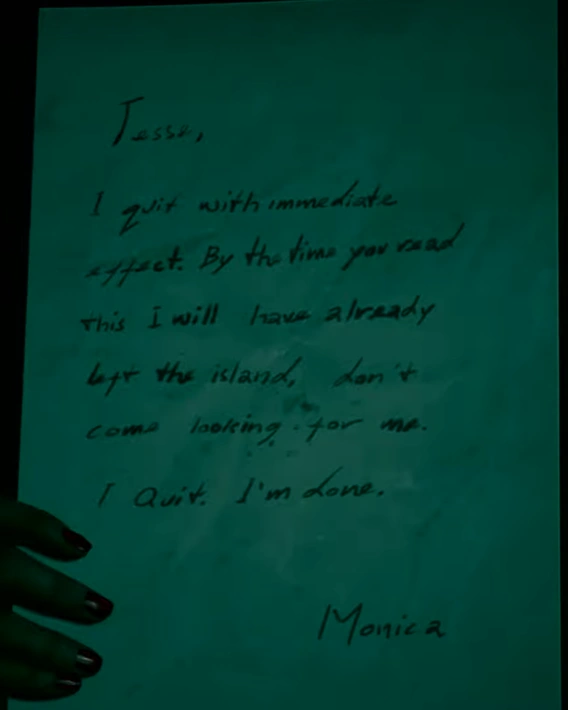 Tesse,
I quit with immediate
effect. By the time you read
this I will have already
left the island, don't
come looking for me.
I Quit. I'm done.
Monica